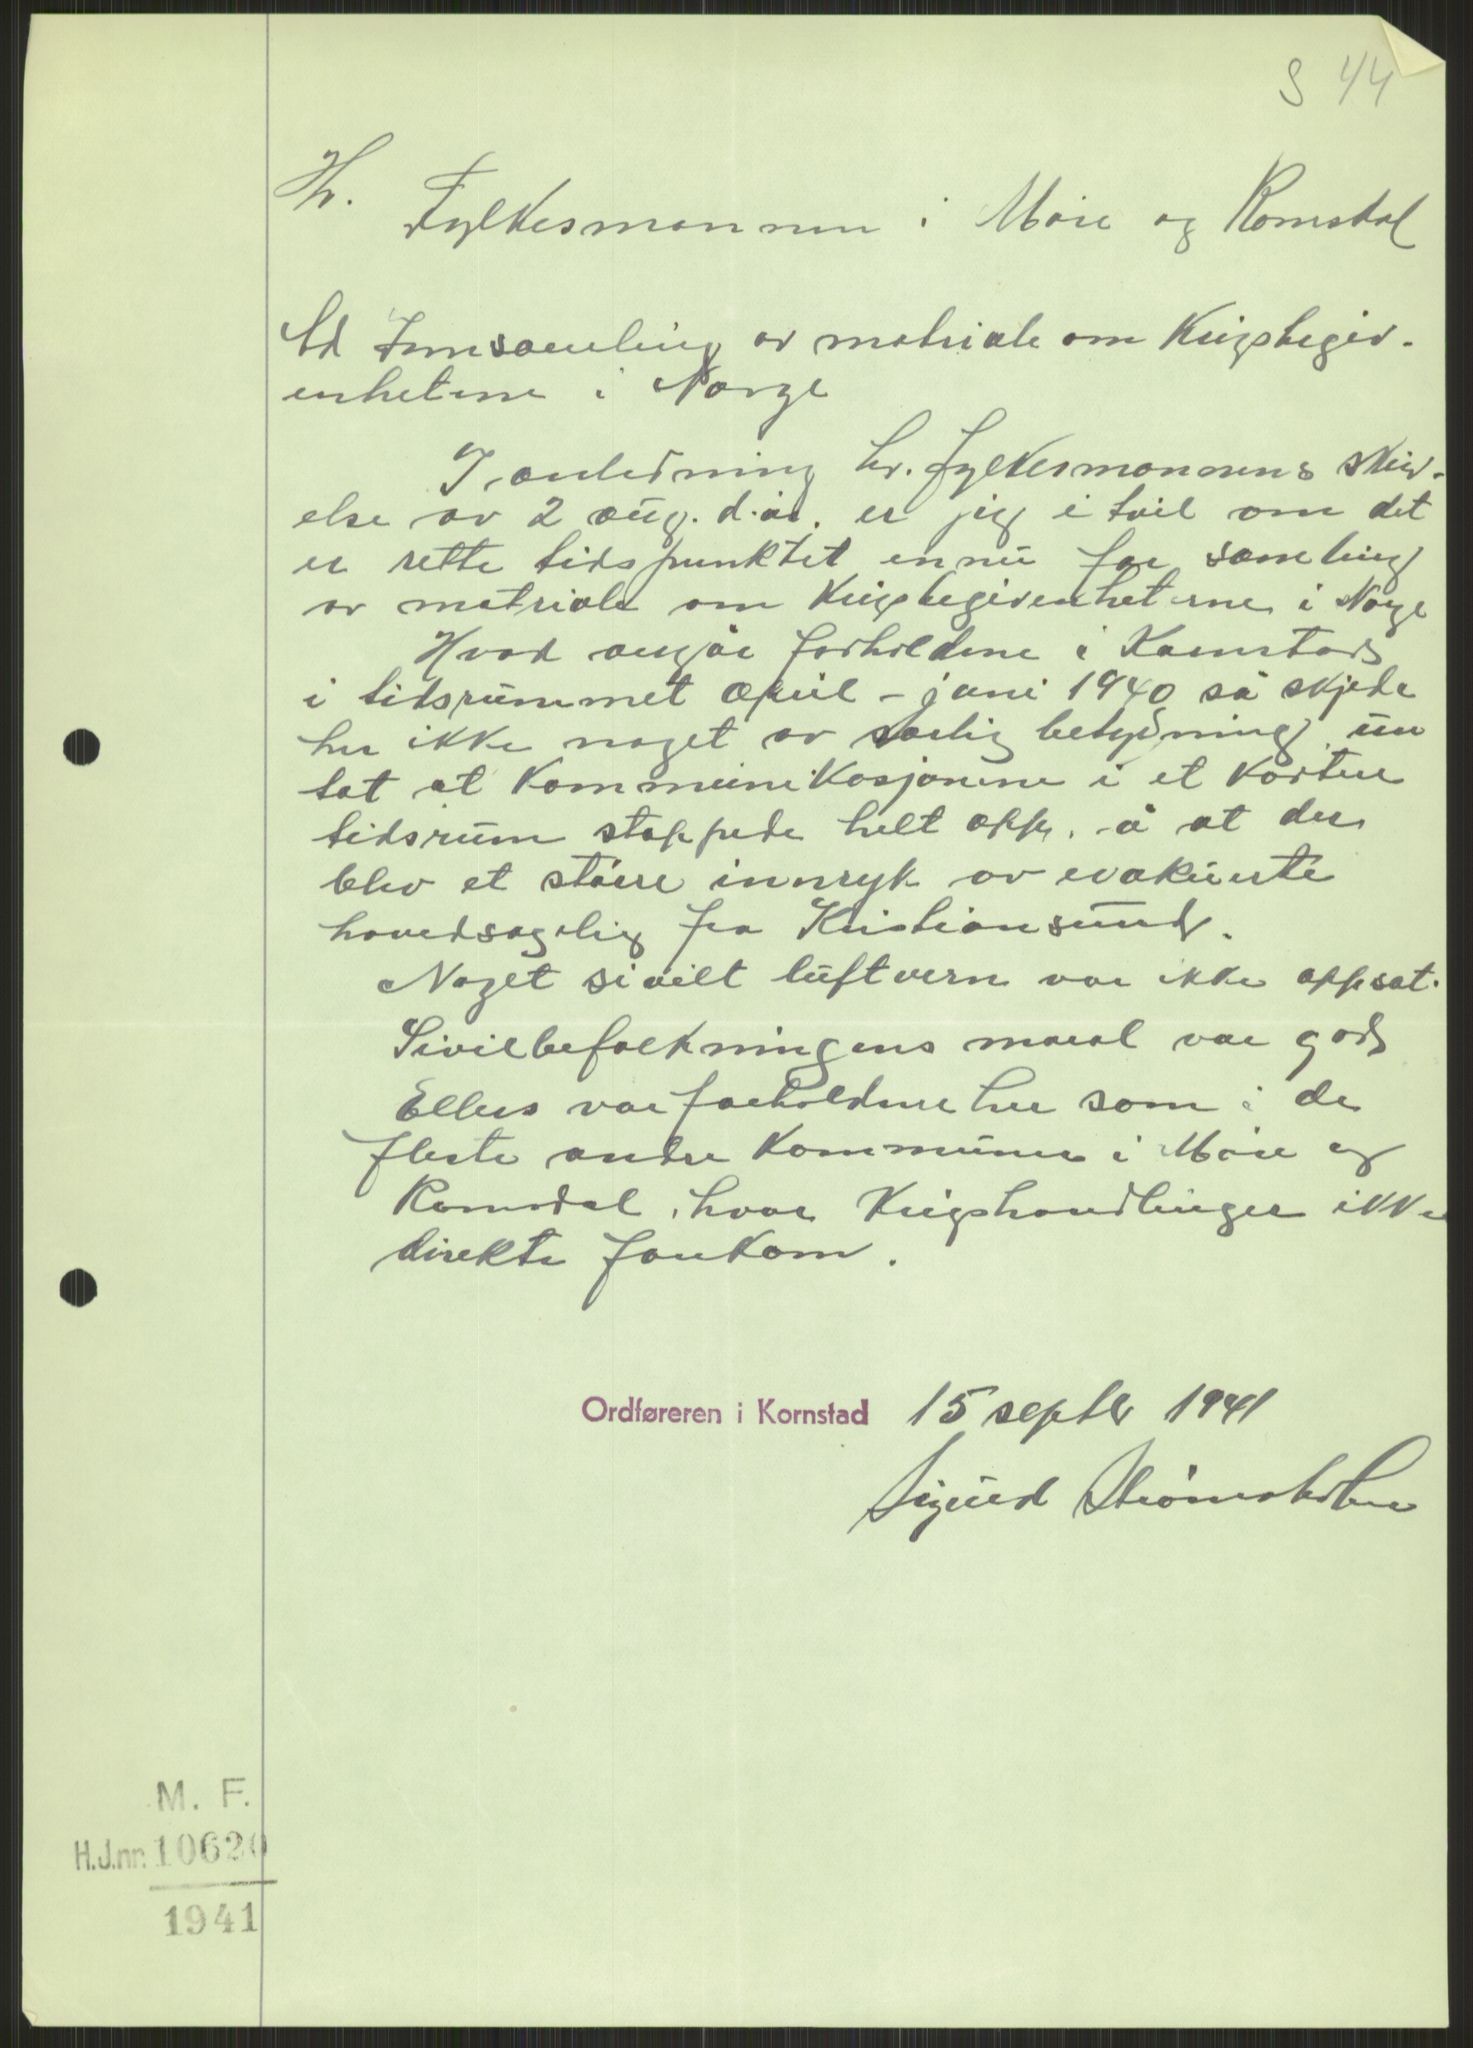 S 44
Hr.
Fylkesmannen i Møre og Romsdal
Ad Innsamling av matriale om Krigsbegiv-
enhetene i Norge
I anledning hr. fylkesmannens skriv-
else av 2 aug. d.år. er jeg i tvil om det
er rette tidspunktet ennu for samling
av matriale om Krigsbegivenheterne i Norge
Hvad angår forholdene i Kornstad
i tidsrummet april - juni 1940 så skjede
her ikke noget av særlig betydning, un
tat at Kommunikasjonene i et kortere
tidsrum stoppede helt opp. å at der
blev et større innryk av evakuerte
hovedsagelig fra Kristiansund.
Noget sivilt luftvern var ikke oppsat.
Sivilbefolkningens moral var god
Ellers var forholdene her som i de
fleste andre Kommuner i Møre og
Romsdal, hvor Krigshandlinger ikke
direkte forekom.
Ordføreren i Kornstad 15 septbr 1941
Sigurd
M. F.
H.J.nr. 10620
1941